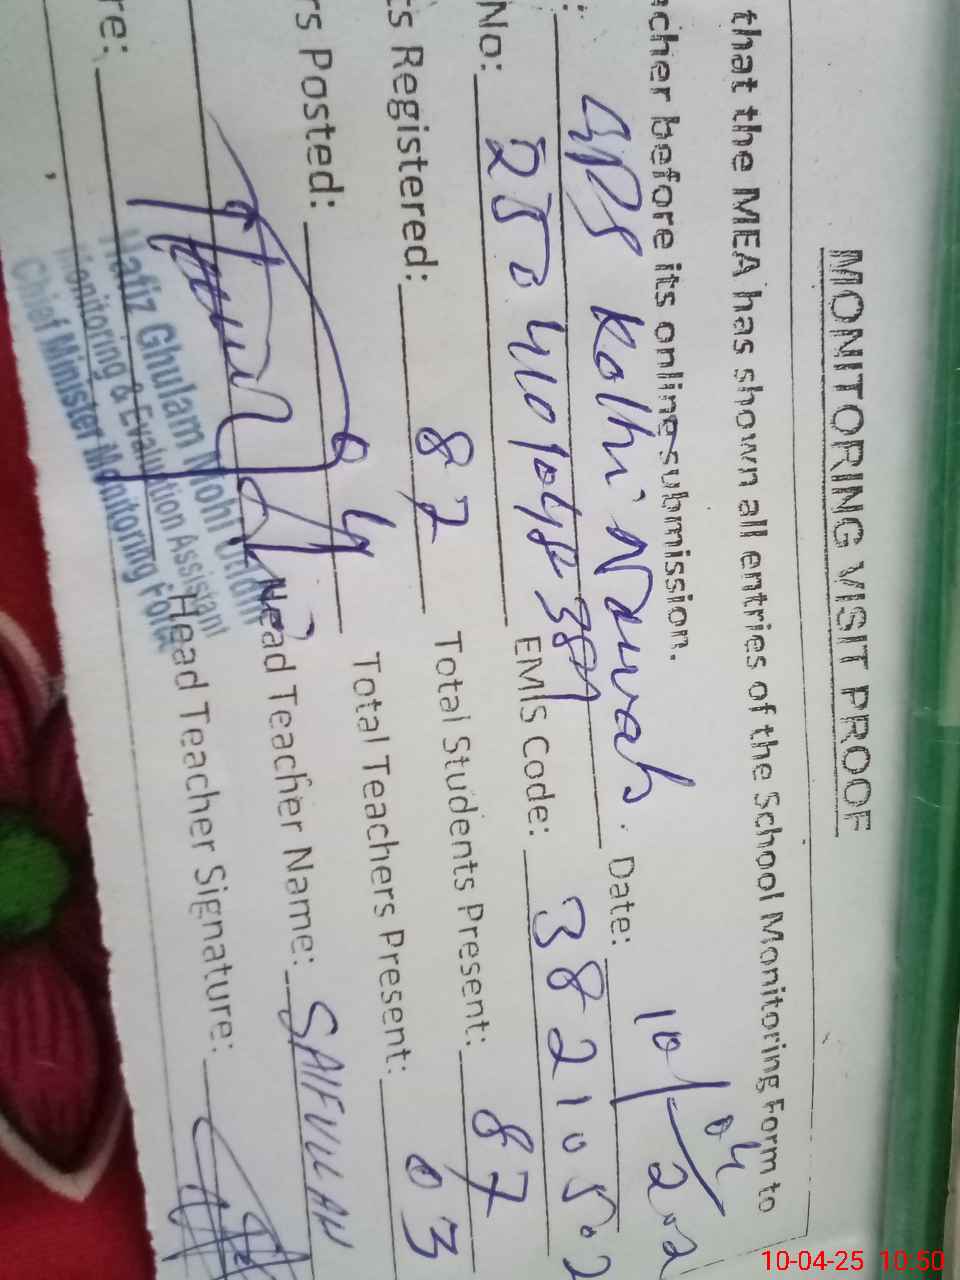 MONITORING VISIT PROOF
that the MEA has shown all entries of the School Monitoring Form to
cher before its online submission.
: GPS Kolhi Nawah. Date: 10/04/202
No: EMIS Code: 38210502
ts Registered: 87 Total Students Present: 87
rs Posted: 04 Total Teachers Present: 03
Head Teacher Name: SAIFULLAH
re: Head Teacher Signature:
Hafiz Ghulam Mohi Uddin
Monitoring & Evaluation Assistant
Chief Minister Monitoring Force
10-04-25 10:50